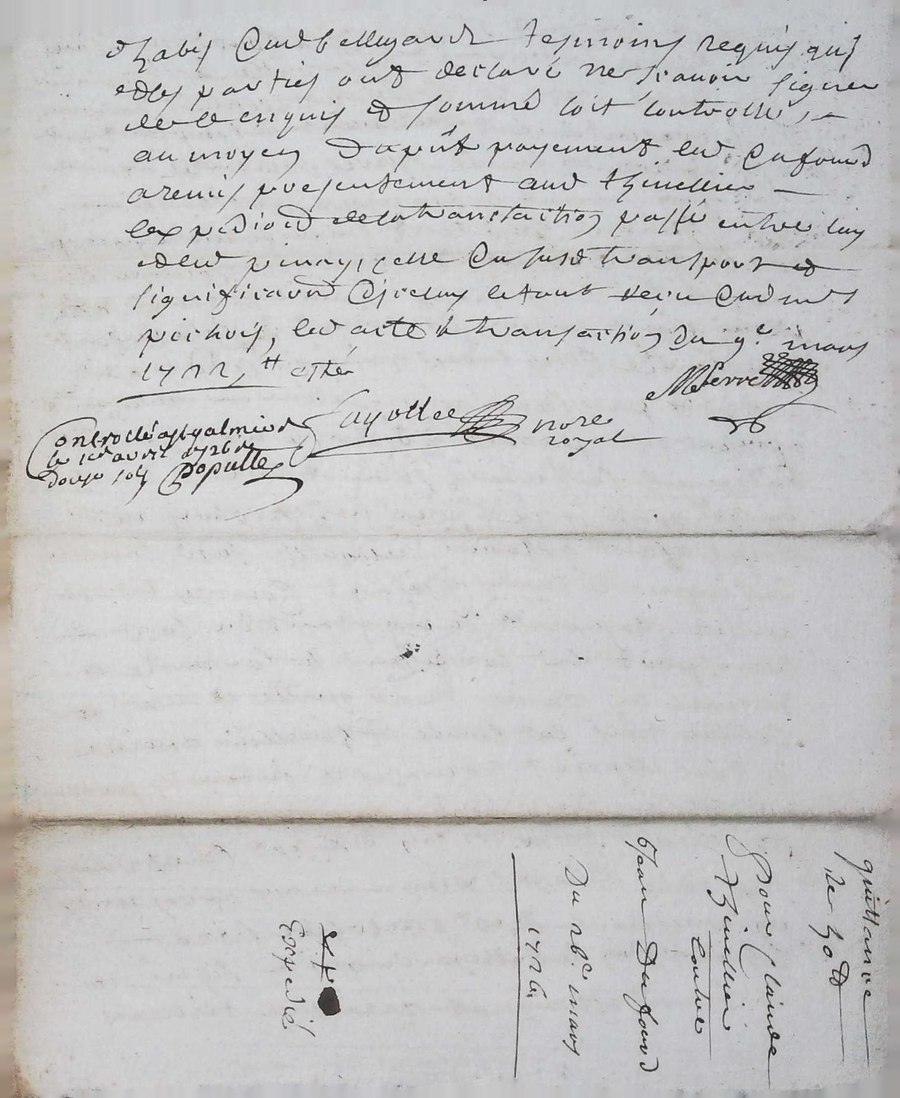 habis audt bellegarde tesmoins requis qui
et les parties ont declaré ne scavoir signer
de ce enquis et sommé soit controllé,
au moyen dupnt payement led Dufourd
a remis presentement aud thinellier
lexpedié de la transaction passé entre luy
et led pinay, celle du susd transport et
signification dicelluy le tout receu
pichois, led acte de transaction du 9e mars
1722,
Mserve
fayolle nore
royal
Controllé a st galmier
le 1er avril 1726 R
douze sols Populle
quittance
de 30tt
Pour Claude
thinellier
contre
Jean Dufourd
Du 26e mars
1726
Expedié